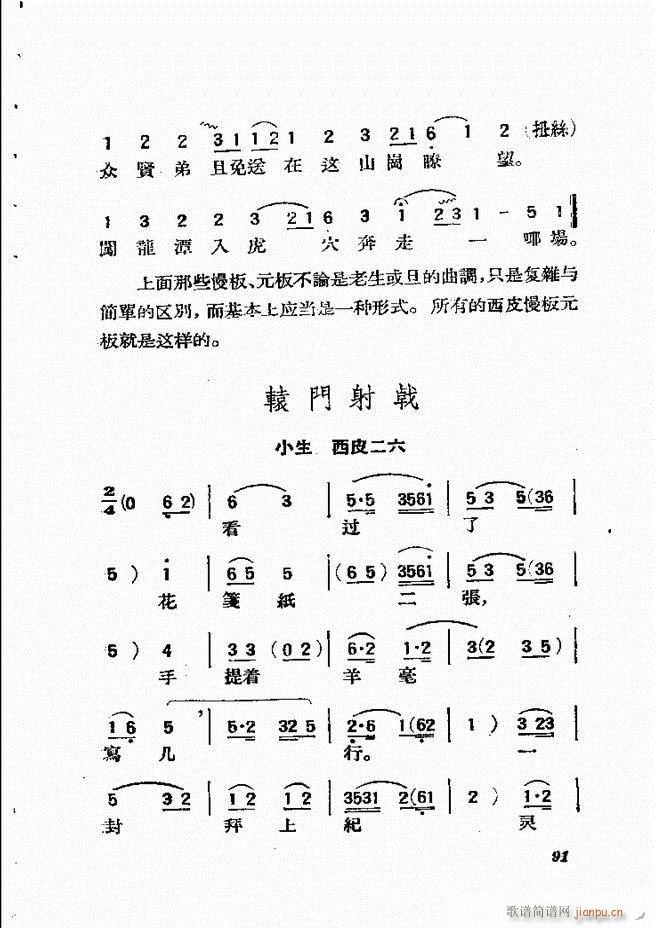 1 2 2 3 1 1 2 1 2 3 2 1 6 1 2 (扭絲)
众賢弟且免送在这山崗瞭望。
1 3 2 2 3 2 1 6 3 i 2 3 1 - 5 1
闖龍潭入虎穴奔走一哪場。
上面那些慢板、元板不論是老生或旦的曲調,只是复雜与
簡單的区別,而基本上应当是一种形式。所有的西皮慢板元
板就是这样的。
轅門射戟
小生 西皮二六
2/4 (0 6 2) | 6 3 | 5·5 3561 | 5 3 5(36
看 过 了
5 ) i | 6 5 5 | (6 5) 3561 | 5 3 5(36
花 箋 紙 二 張,
5 ) 4 | 3 3 (0 2) | 6·2 1·2 | 3(2 3 5)
手 提着 羊 毫
1 6 5 ’ | 5·2 32 5 | 2·6 1(62 | 1 ) 3 23
寫 几 行。 一
5 3 2 | 1 2 1 2 | 3531 2(61 | 2 ) 1·2
封 拜 上 紀 灵
91
歌谱简谱网 jianpu.cn